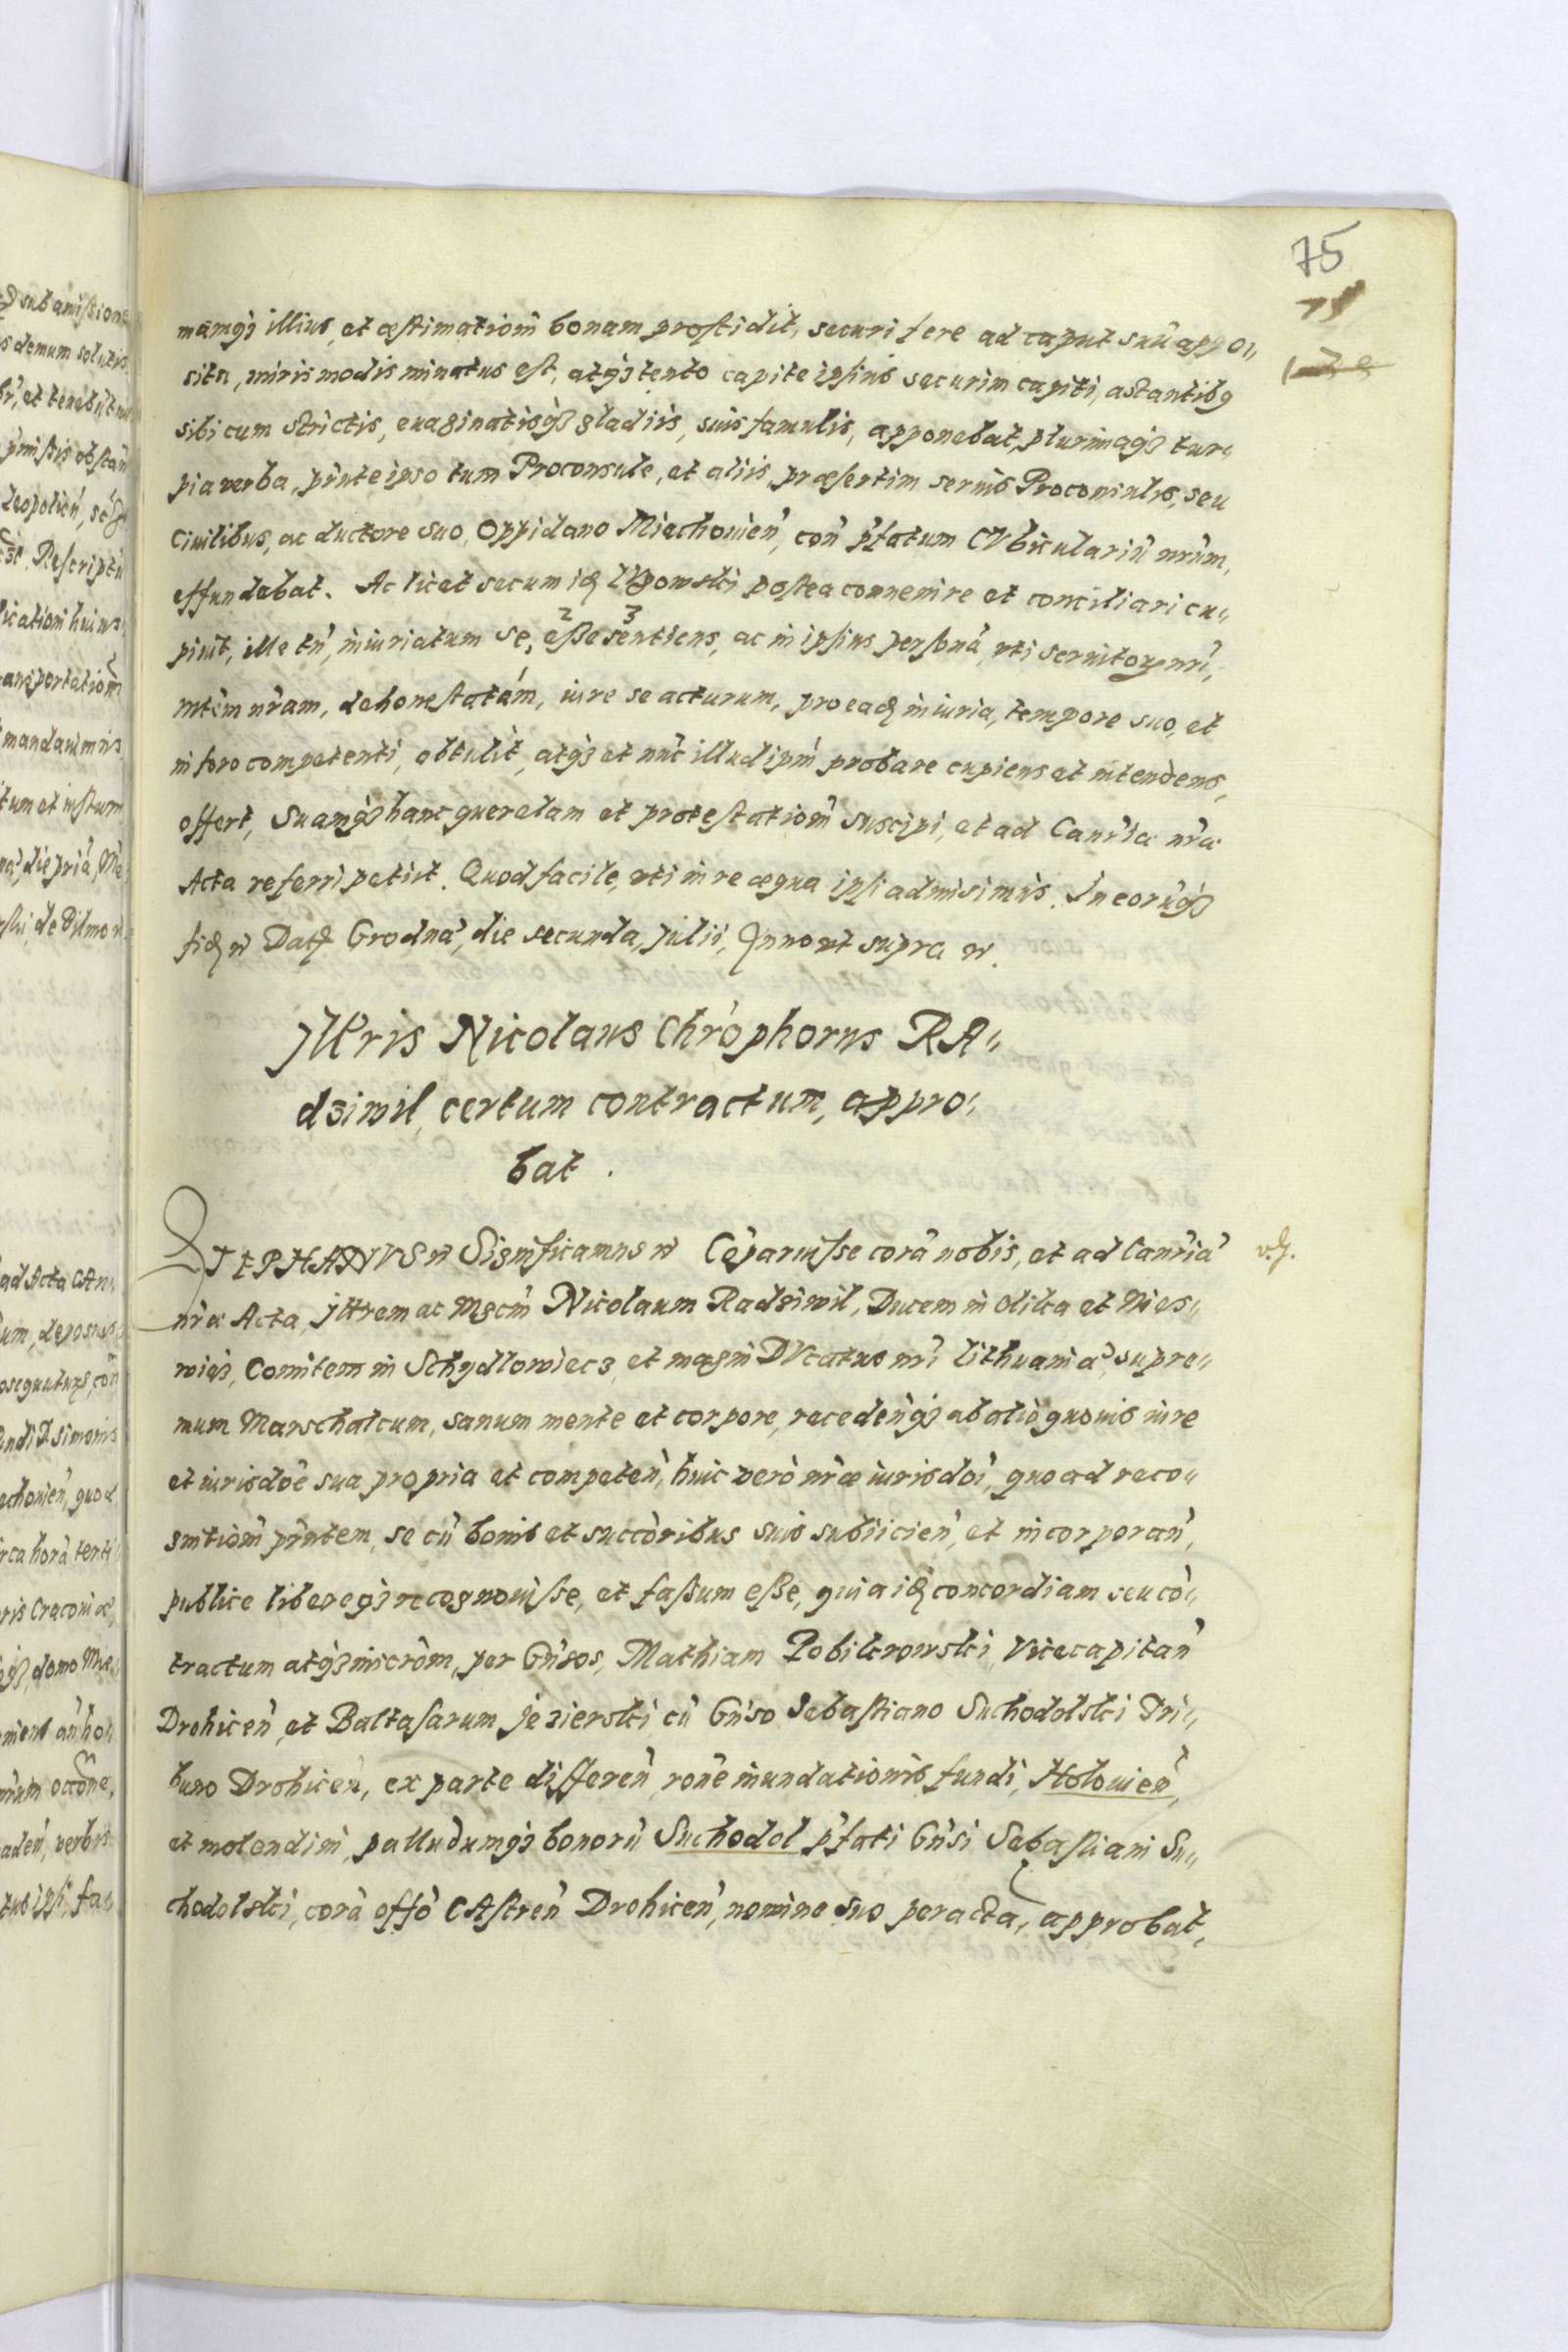 75
mamq3 illius, et æstimationem̃ bonam prostidit, securi fere ad caput suũ appo„
sita, miris modis minatus est, atq3 tento capite ipsius securim capiti, astantibq
sibi cum strictis, euaginatisq3 gladiis, suis famulis, apponebat, plurimaq3 tur„
pia verba, pñte ipso tum Proconsule, et aliis, præsertim seruis Proconsulis, seu
Ciuilibus, ac ductore suo, Oppidano Miechouień, coñ pfatum CVbiculariũ nrũm,
effundebat. Ac licet secum idq postea conuenire et conciliari cu„
piuit, ille tñ, iniuriatum se, eße sentiens, ac in ipsius persona, vti seruitoris nri,
2 3
mtem nram, dehonestatam, iure se acturum, pro eadq iniuria, tempore suo, et
in foro competenti, obtulit, atq3 et nũc illud ipm̃ probare cupiens et intendens,
offert, Suamq3 hanc querelam et protestationem̃ suscipi, et ad Canrlæ nræ
Acta referri petiit. Quod facile, vti in re æqua ipsi admisimus. In eorũq3
fidq Datq Grodnæ, die secunda, Julii, Anno vt supra.
Jllris Nicolaus Chrophorus RA„
dziwil, certum contractum, appro„
bat.
STEPHANVS Significamus Cõparuisse corã nobis, et ad Canrlæ
nræ Acta, Jllrem ac Mgcm̃ Nicolaum Radziwil, Ducem in Olika et Nies„
wies, Comitem in Schydlowiecz, et magni DVcatus nri Lithuaniæ, supre„
mum Marschalcum, sanum mente et corpore, recedeñq3 ab alio quouis iure
et iurisdoe sua propria et competeñ, huic vero nræ iurisdoi, quo ad reco„
gnitiom̃ pñtem, se cũ bonis et succoribus suis subiicieñ, et incorporañ,
publice libereq3 recognouisse, et faßum eße, quia idq concordiam seu cõ„
tractum atq3 inscrõm, per Gñsos, Mathiam Pobikrowski Vicecapitañ
Drohiceñ, et Baltasarum Jezierski, cũ Gñso Sebastiano Suchodolski Tri„
buno Drohiceñ, ex parte differeñ, rone inundationis fundi, Holouień,
et molendini, palludumq3 bonorũ Suchodol pfati Gñsi Sebastiani Su„
chodolski, corã offo CAstreñ Drohiceñ, nomine suo peracta, approbat,